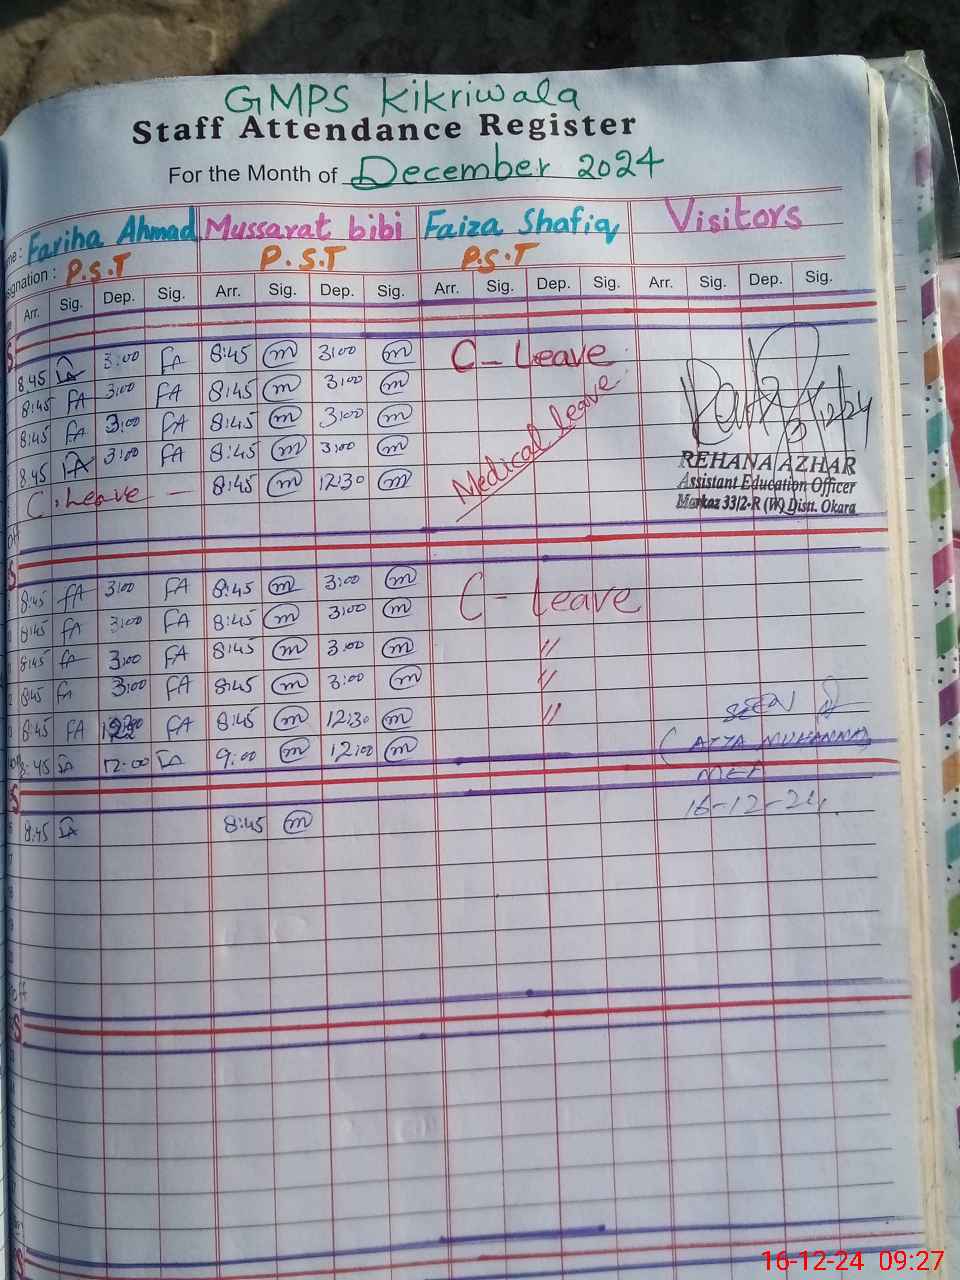 GMPS Kikriwala
Staff Attendance Register
For the Month of December 2024
Fariha Ahmad Mussarat bibi Faiza Shafiq Visitors
P.S.T P.S.T P.S.T
Arr. Sig. Dep. Sig. Arr. Sig. Dep. Sig. Arr. Sig. Dep. Sig. Arr. Sig. Dep. Sig.
8:45 FA 3:00 FA 8:45 m 3:00 m C-Leave
8:45 FA 3:00 FA 8:45 m 3:00 m
8:45 FA 3:00 FA 8:45 m 3:00 m Medical leave
8:45 FA 3:00 FA 8:45 m 3:00 m
C.Leave - 8:45 m 12:30 m
REHANA AZHAR
Assistant Education Officer
Markaz 33/2-R (W) Distt. Okara
8:45 FA 3:00 FA 8:45 m 3:00 m C-Leave
8:45 FA 3:00 FA 8:45 m 3:00 m
8:45 FA 3:00 FA 8:45 m 3:00 m "
8:45 FA 3:00 FA 8:45 m 3:00 m "
8:45 FA FA 8:45 m 12:30 m " SEEN
8:45 FA 12:00 FA 9:00 m 12:00 m (ATTA MUHAMMAD
MEA
16-12-24.
8:45 FA 8:45 m
16-12-24 09:27